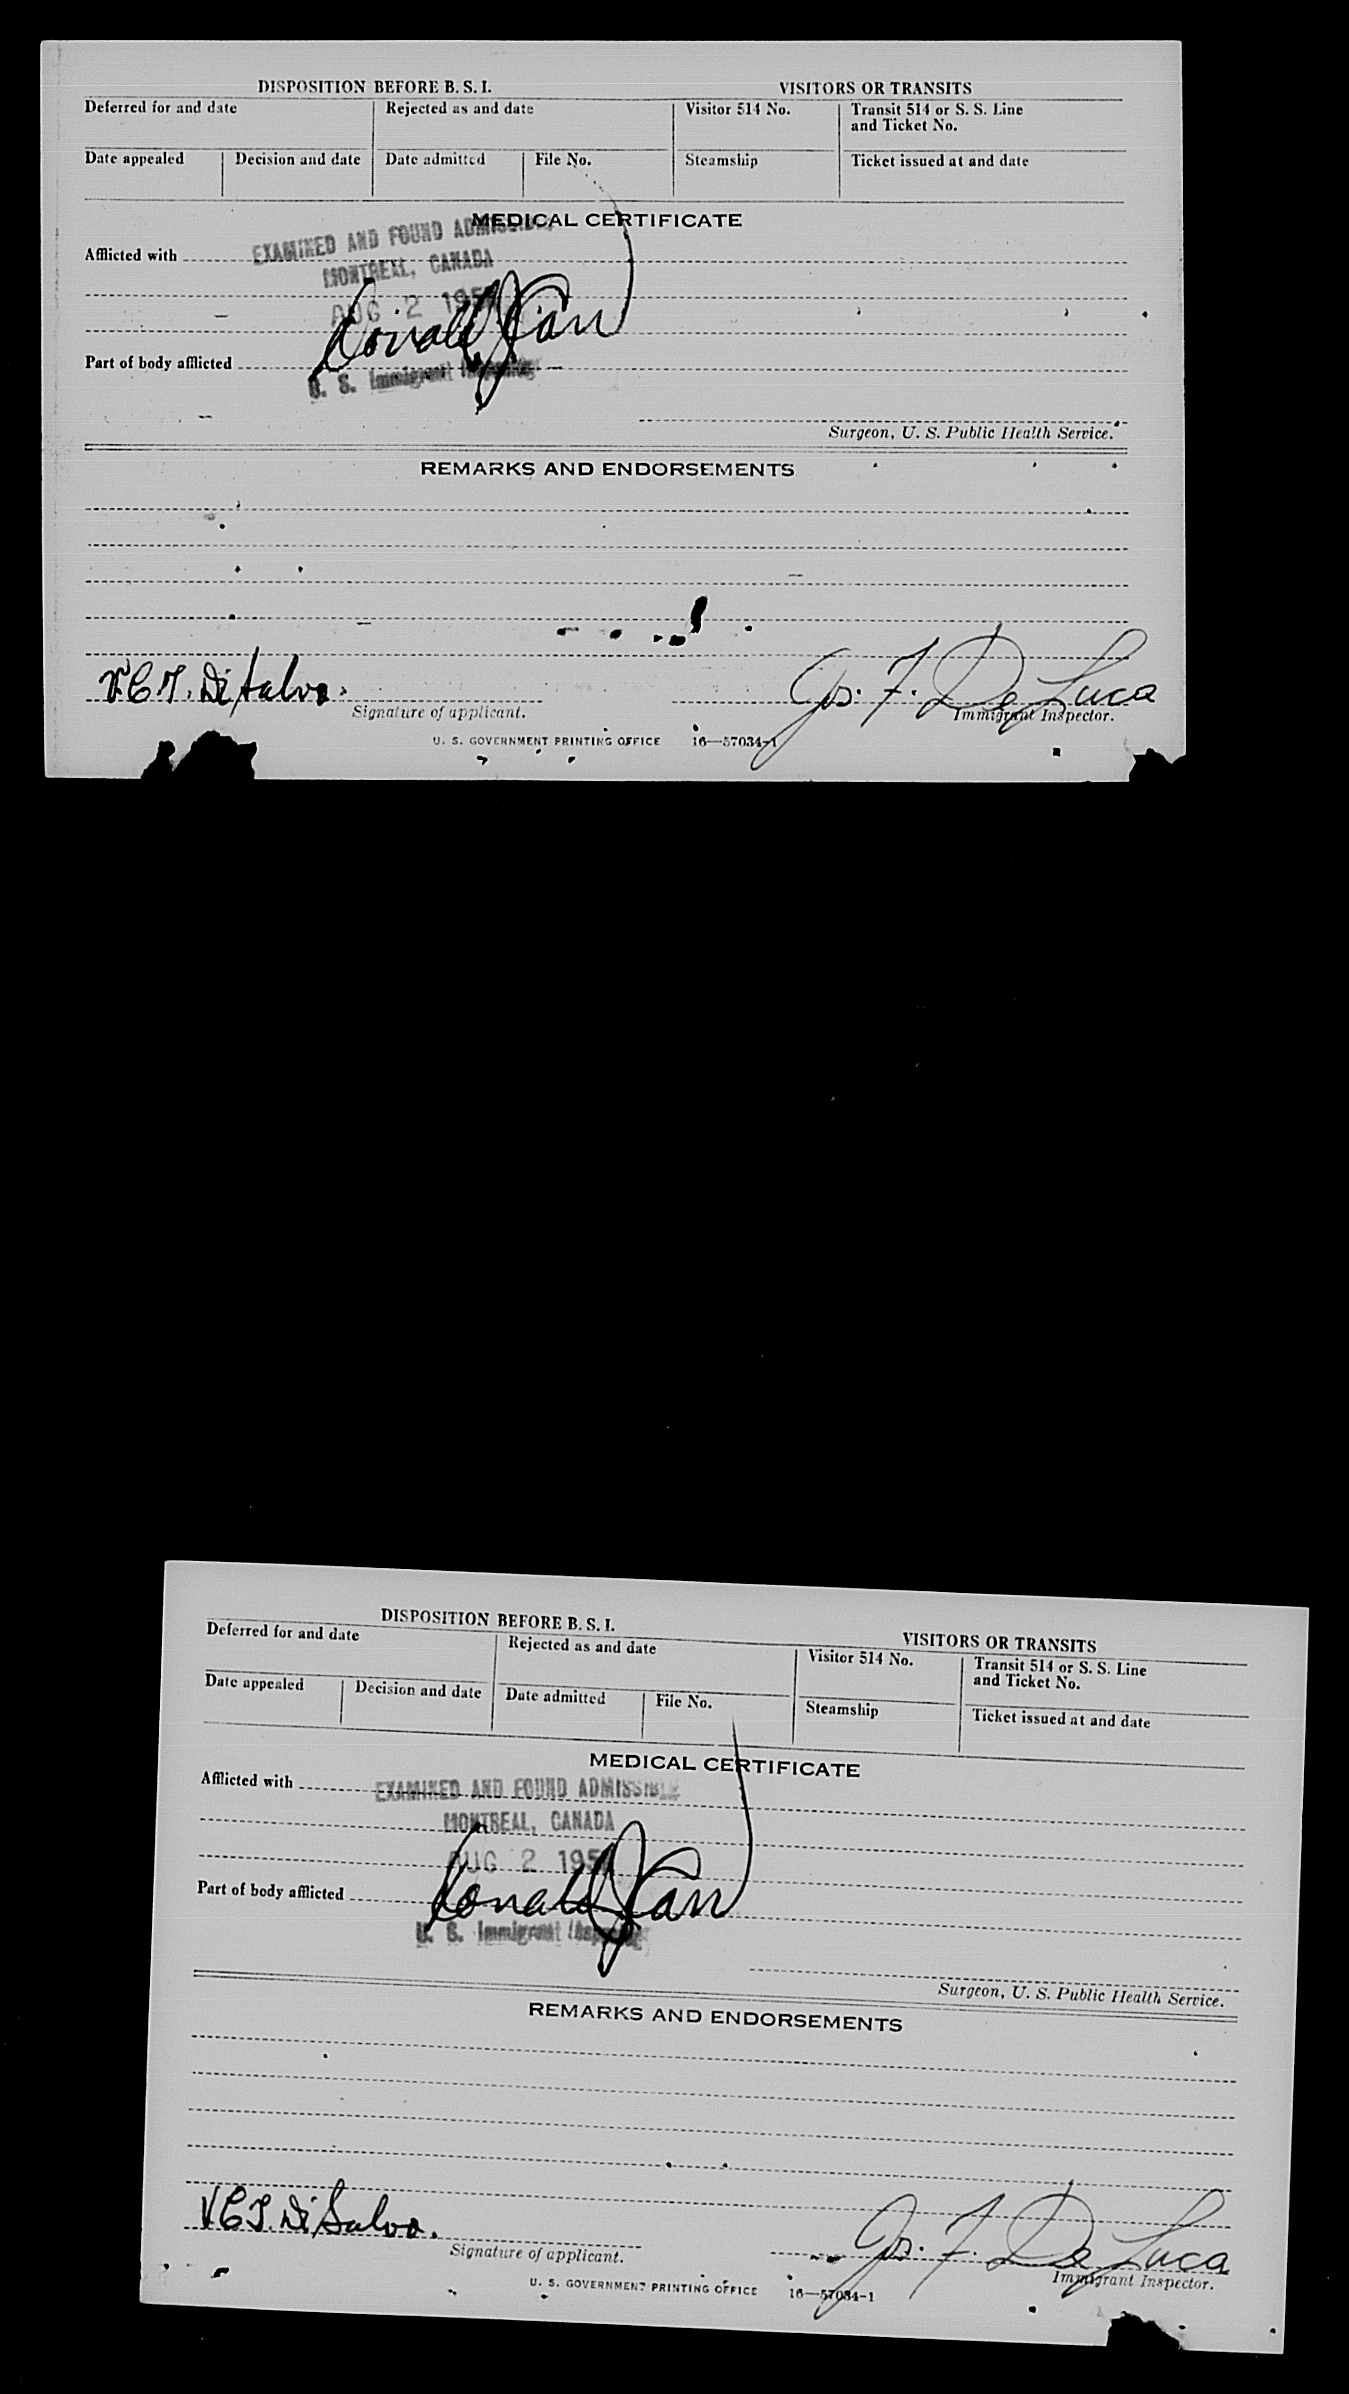 DISPOSITION BEFORE B. S. I. VISITORS OR TRANSITS
Deferred for and date Rejected as and date Visitor 514 No. Transit 514 or S. S. Line
and Ticket No.
Date appealed Decision and date Date admitted File No. Steamship Ticket issued at and date
MEDICAL CERTIFICATE
EXAMINED AND FOUND ADMISSIBLE
Afflicted with
MONTREAL, CANADA
AUG 2 195
Donald J Carr
Part of body afflicted
U. S. Immigrant Inspector
Surgeon, U. S. Public Health Service.
REMARKS AND ENDORSEMENTS
V.C.T. Di Salvo. Jos. F. De Luca
Signature of applicant. Immigrant Inspector.
U. S. GOVERNMENT PRINTING OFFICE 16—57034-1
DISPOSITION BEFORE B. S. I. VISITORS OR TRANSITS
Deferred for and date Rejected as and date Visitor 514 No. Transit 514 or S. S. Line
and Ticket No.
Date appealed Decision and date Date admitted File No. Steamship Ticket issued at and date
MEDICAL CERTIFICATE
Afflicted with EXAMINED AND FOUND ADMISSIBLE
MONTREAL, CANADA
AUG 2 195
Donald J Carr
Part of body afflicted
U. S. Immigrant Inspector
Surgeon, U. S. Public Health Service.
REMARKS AND ENDORSEMENTS
V C T. Di Salvo. Jos. F. De Luca
Signature of applicant. Immigrant Inspector.
U. S. GOVERNMENT PRINTING OFFICE 16—57034-1